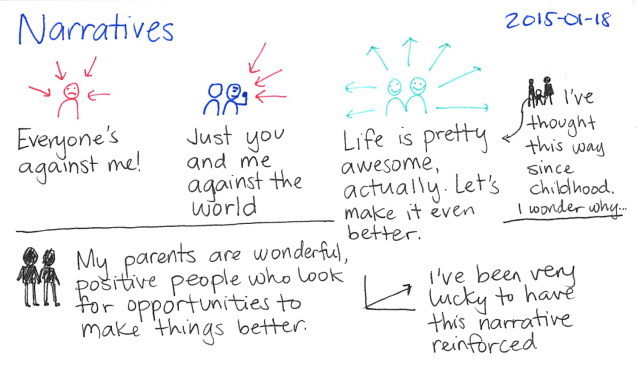 Narratives
2015-01-18
Everyone's
against me!
Just you
and me
against the
world
Life is pretty
awesome,
actually. Let's
make it even
better.
I've
thought
this way
since
childhood.
I wonder why...
My parents are wonderful,
positive people who look
for opportunities to
make things better.
I've been very
lucky to have
this narrative
reinforced